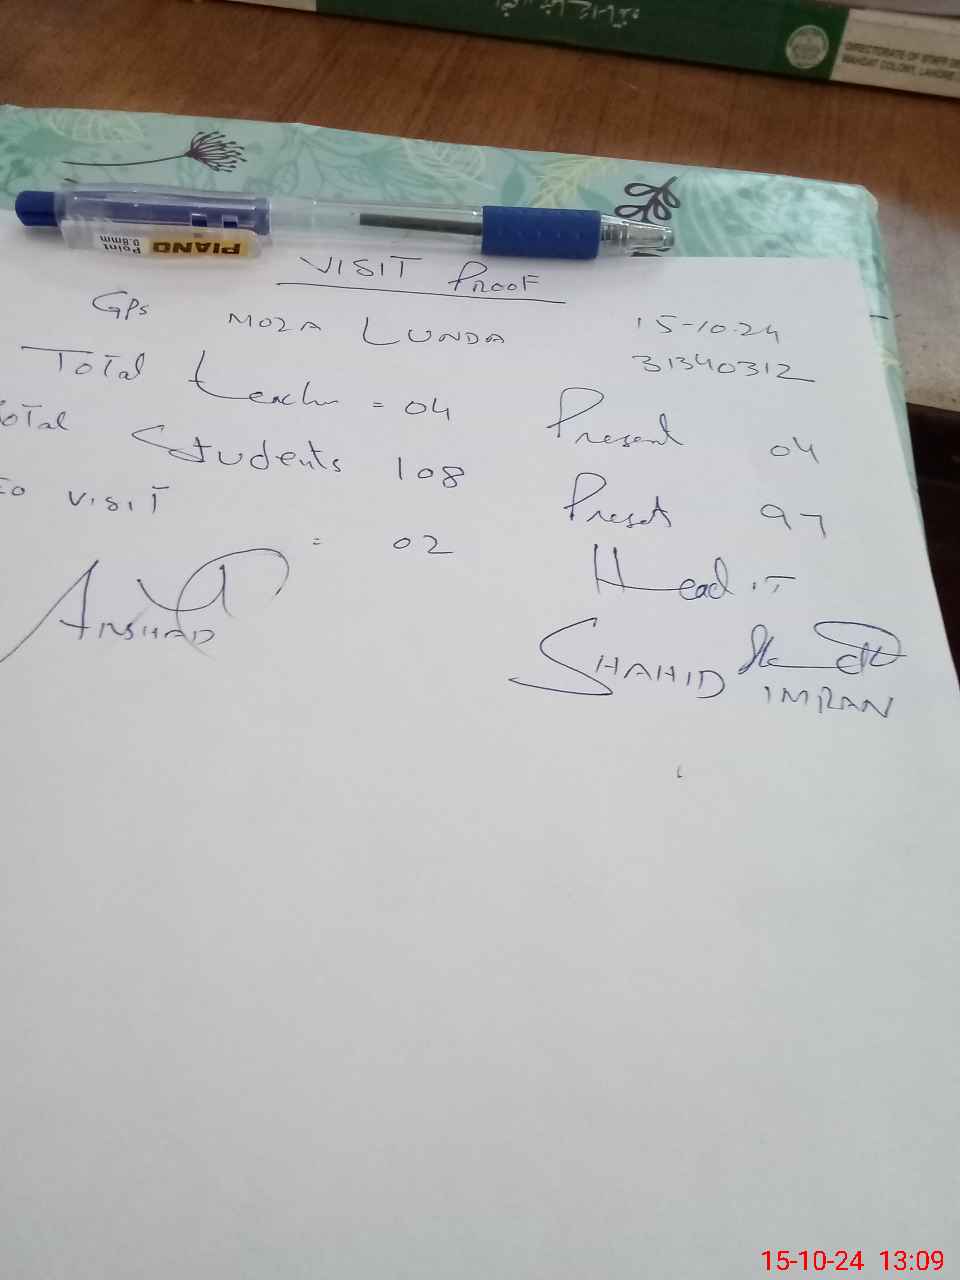 DIRECTORATE OF STAFF DE
WAHDAT COLONY, LAHORE
PIANO
Point
0.8mm
VISIT PROOF
GPS MOZA LUNDA 15-10-24
31340312
Total teacher = 04 Present 04
Total Students 108 Preset 97
EO VISIT = 02 Head IT
ARSHAD
SHAHID IMRAN
15-10-24 13:09